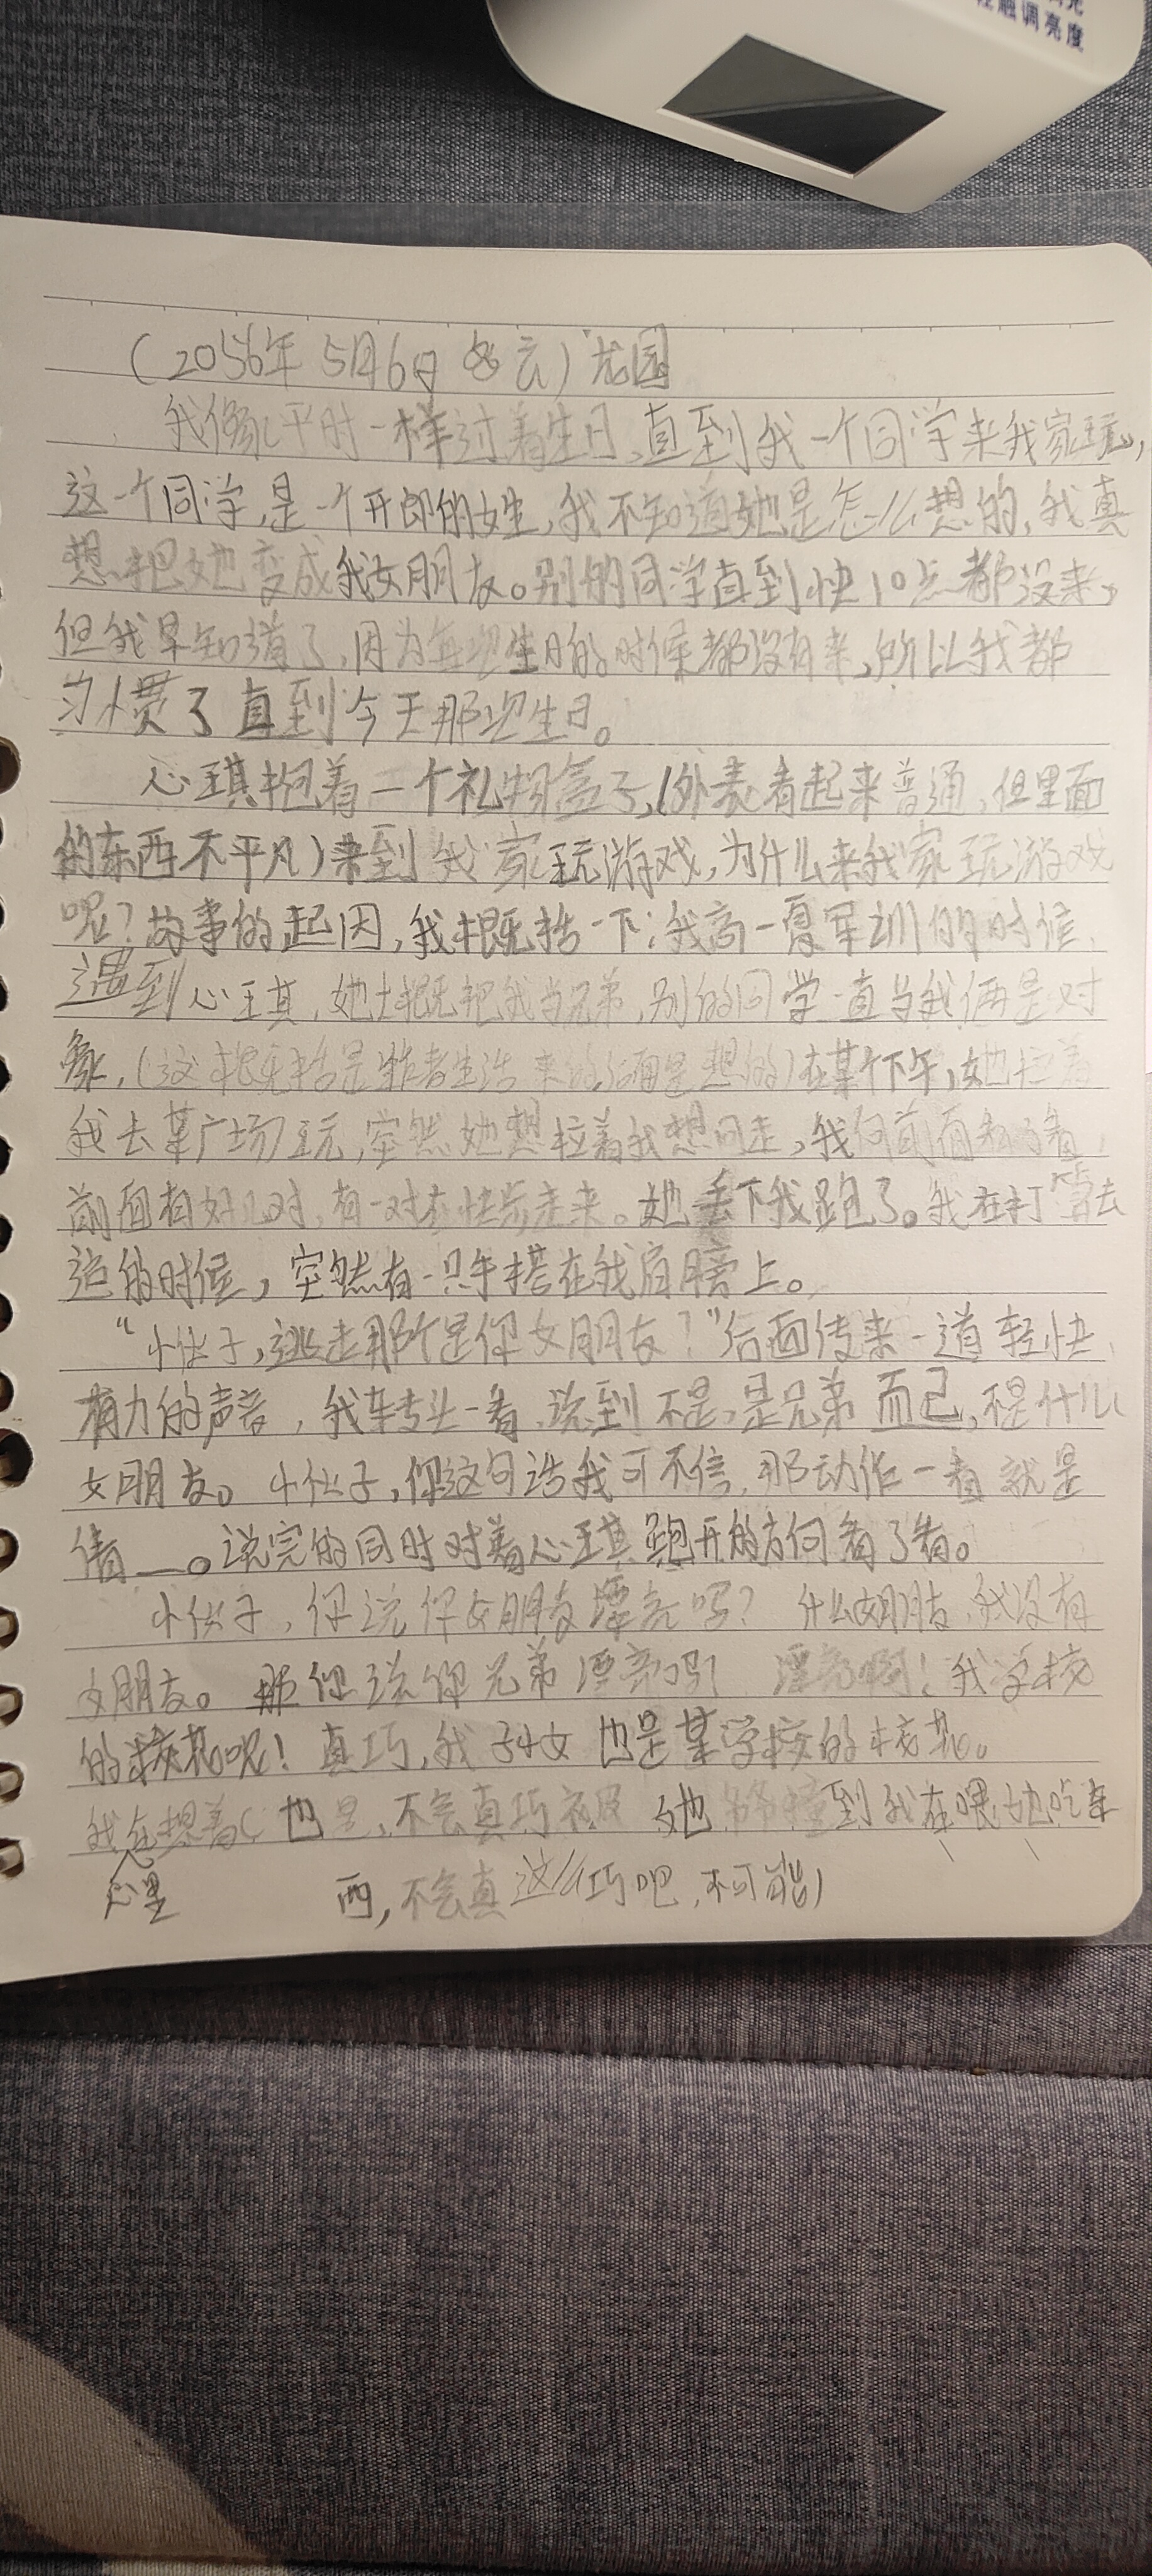 轻触调亮度
(2056年5月6日 多云) 龙国
我像平时一样过着生日,直到我一个同学来我家玩,
这一个同学,是一个开郎的女生,我不知道她是怎么想的,我真
想把她变成我女朋友。别的同学直到快10点都没来,
但我早知道了,因为每次生日的时候都没有来,所以我都
习惯了直到今天那次生日。
心琪抱着一个礼物盒子,(外表看起来普通,但里面
的东西不平凡)来到我家玩游戏,为什么来我家玩游戏
呢?故事的起因,我概括一下:我高一夏军训的时候,
遇到心琪,她大概把我当兄弟,别的同学一直当我俩是对
象,(这概括是作者生活来的,)在某个下午,她拉着
我去某广场玩,突然她想拉着我想回走,我向前面看了看,
前面有好几对,有一对在快步走来。她丢下我跑了。我在打算去
追的时候,突然有一只手搭在我肩膀上。
“小伙子,逃走那个是你女朋友?”后面传来一道轻快
有力的声音,我转头一看,说到不是,是兄弟而己,不是什么
女朋友。小伙子,你这句话我可不信,那动作一看就是
情__。说完的同时对着心琪跑开的方向看了看。
小伙子,你说你女朋友漂亮吗? 什么女朋友,我没有
女朋友。 那你说你兄弟漂亮吗? 漂亮啊!我学校
的校花呢!真巧,我孙女也是某学校的校花。
我心里在想着(也是,不会真巧被 她 撞到我在喂她吃东
西,不会真这么巧吧,不可能)